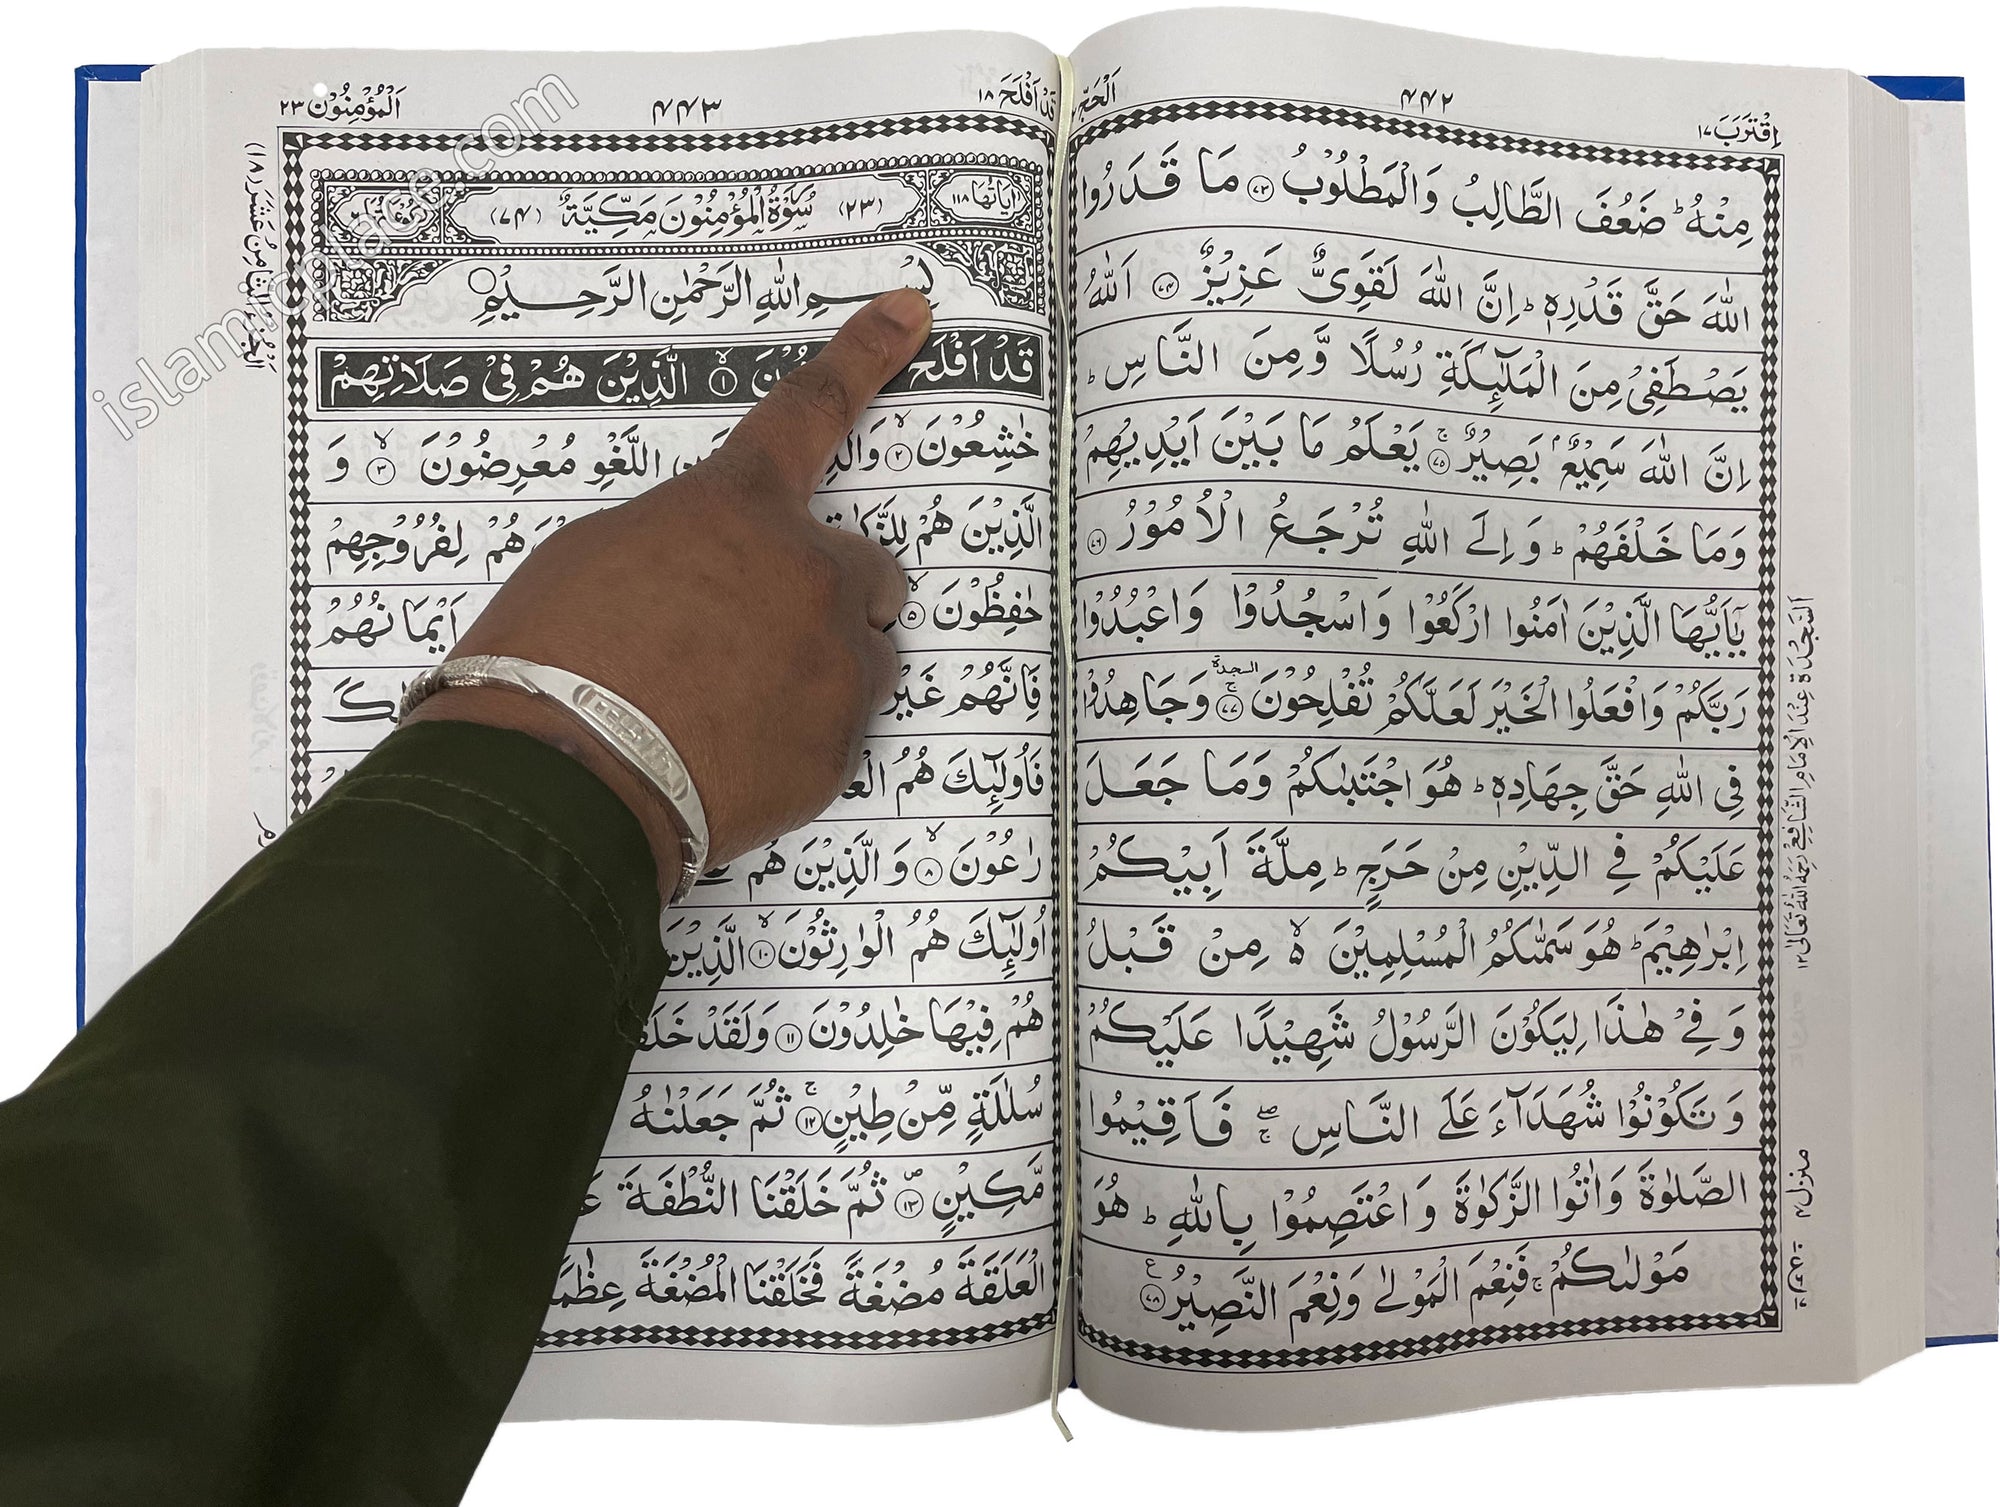 اِقْتَرَبَ ۱۷
۴۴۲
اَلْحَجّ
مِنْهُ ؕ ضَعُفَ الطَّالِبُ وَالْمَطْلُوْبُ ﴿۷۳﴾ مَا قَدَرُوا
اللّٰهَ حَقَّ قَدْرِهٖ ؕ اِنَّ اللّٰهَ لَقَوِیٌّ عَزِیْزٌ ﴿۷۴﴾ اَللّٰهُ
یَصْطَفِیْ مِنَ الْمَلٰٓئِكَةِ رُسُلًا وَّ مِنَ النَّاسِ ؕ
اِنَّ اللّٰهَ سَمِیْعٌۢ بَصِیْرٌ ﴿۷۵﴾ۚ یَعْلَمُ مَا بَیْنَ اَیْدِیْهِمْ
وَمَا خَلْفَهُمْ ؕ وَ اِلَی اللّٰهِ تُرْجَعُ الْاُمُوْرُ ﴿۷۶﴾
یٰۤاَیُّهَا الَّذِیْنَ اٰمَنُوا ارْكَعُوْا وَاسْجُدُوْا وَاعْبُدُوْا
رَبَّكُمْ وَافْعَلُوا الْخَیْرَ لَعَلَّكُمْ تُفْلِحُوْنَ ﴿۷۷﴾ۚ السجدة وَجَاهِدُوْا
فِی اللّٰهِ حَقَّ جِهَادِهٖ ؕ هُوَ اجْتَبٰىكُمْ وَمَا جَعَلَ
عَلَیْكُمْ فِی الدِّیْنِ مِنْ حَرَجٍ ؕ مِلَّةَ اَبِیْكُمْ
اِبْرٰهِیْمَ ؕ هُوَ سَمّٰىكُمُ الْمُسْلِمِیْنَ ۙ مِنْ قَبْلُ
وَفِیْ هٰذَا لِیَكُوْنَ الرَّسُوْلُ شَهِیْدًا عَلَیْكُمْ
وَ تَكُوْنُوْا شُهَدَآءَ عَلَی النَّاسِ ۖۚ فَاَقِیْمُوا
الصَّلٰوةَ وَاٰتُوا الزَّكٰوةَ وَاعْتَصِمُوْا بِاللّٰهِ ؕ هُوَ
مَوْلٰىكُمْ ۚ فَنِعْمَ الْمَوْلٰی وَنِعْمَ النَّصِیْرُ ﴿۷۸﴾ ع
اَلسَّجْدَةُ عِنْدَ الْاِمَامِ الشَّافِعِیِّ رَحِمَهُ اللّٰهُ تَعَالٰی ۱۲
منزل ۴
قَدْ اَفْلَحَ ۱۸
۴۴۳
اَلْمُؤْمِنُوْن ۲۳
اٰیَاتُهَا ۱۱۸
(۲۳) سُوْرَةُ الْمُؤْمِنُوْنَ مَكِّیَّةٌ (۷۴)
بِسْمِ اللّٰهِ الرَّحْمٰنِ الرَّحِیْمِ
قَدْ اَفْلَحَ ﴿۱﴾ۙ الَّذِیْنَ هُمْ فِیْ صَلَاتِهِمْ
خٰشِعُوْنَ ﴿۲﴾ۙ اللَّغْوِ مُعْرِضُوْنَ ﴿۳﴾ۙ وَ
الَّذِیْنَ هُمْ هُمْ لِفُرُوْجِهِمْ
حٰفِظُوْنَ ﴿۵﴾ۙ اَیْمَانُهُمْ
فَاِنَّهُمْ غَیْرُ
فَاُولٰٓئِكَ هُمُ
رٰعُوْنَ ﴿۸﴾ۙ وَ الَّذِیْنَ هُمْ
اُولٰٓئِكَ هُمُ الْوٰرِثُوْنَ ﴿۱۰﴾ۙ الَّذِیْنَ
هُمْ فِیْهَا خٰلِدُوْنَ ﴿۱۱﴾ وَلَقَدْ
سُلٰلَةٍ مِّنْ طِیْنٍ ﴿۱۲﴾ۚ ثُمَّ جَعَلْنٰهُ
مَّكِیْنٍ ﴿۱۳﴾۪ ثُمَّ خَلَقْنَا النُّطْفَةَ
الْعَلَقَةَ مُضْغَةً فَخَلَقْنَا الْمُضْغَةَ
اَلْجُزْءُ الثَّامِنُ عَشَرَ (۱۸)
islamicplace.com